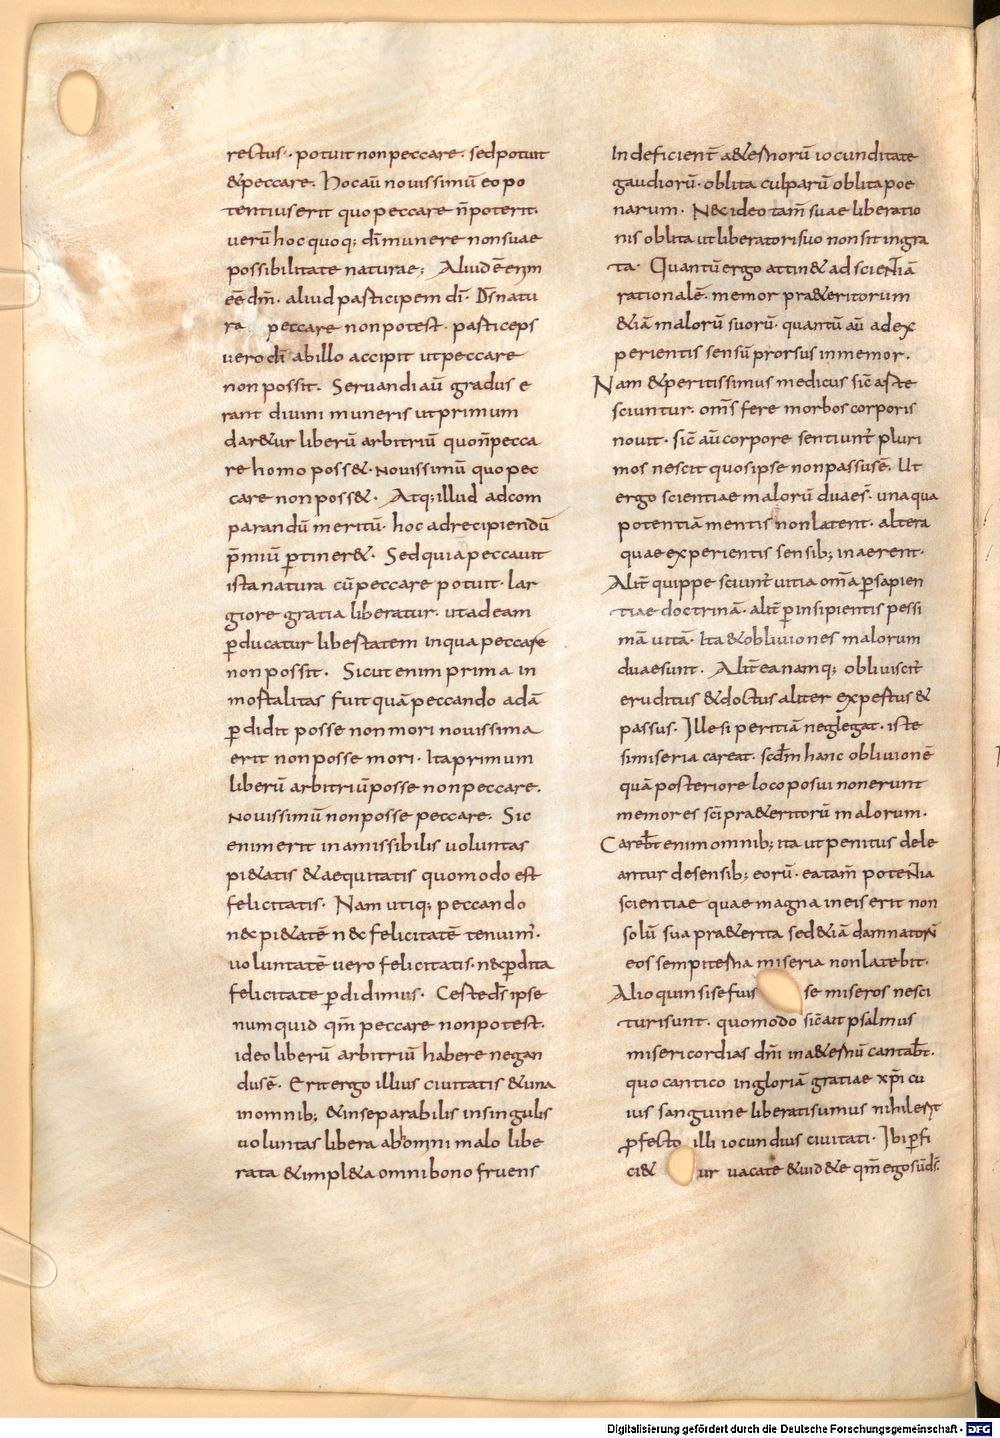 rectus · potuit non peccare · sed potuit
& peccare · Hoc aū nouissimū eo po
tentius erit quo peccare n̄ poterit ·
uerū hoc quoq; dī munere non suae
possibilitate naturae; Aliud ē enim
eē dm̄ · aliud participem dī · Ds̄ natu
ra peccare non potest · particeps
uero dī ab illo accipit ut peccare
non possit · Seruandi aū gradus e
rant diuini muneris ut primum
dar&ur liberū arbitriū quo n̄ pecca
re homo poss& · Nouissimū quo pec
care non poss& · Atq; illud ad com
parandū meritū · hoc ad recipiendū
p̄miū ptiner& · Sed quia peccauit
ista natura cū peccare potuit · lar
giore gratia liberatur · ut ad eam
pducatur libertatem in qua peccare
non possit · Sicut enim prima in
mortalitas fuit quā peccando adā
pdidit posse non mori nouissima
erit non posse mori · Ita primum
liberū arbitriū posse non peccare ·
Nouissimū non posse peccare · Sic
enim erit inamissibilis uoluntas
pi&atis & aequitatis quomodo est
felicitatis · Nam utiq; peccando
nec pi&atē nec felicitatē tenuim̄ ·
uoluntatē uero felicitatis · nec pdita
felicitate pdidimus · Certe ds̄ ipse
numquid qm̄ peccare non potest ·
ideo liberū arbitriū habere negan
dus ē · Erit ergo illius ciuitatis & una
in omnib; & inseparabilis in singulis
uoluntas libera ab omni malo libe
rata & impl&a omni bono fruens
Indeficient̄ a&ernorū iocunditate
gaudiorū · oblita culparū oblita poe
narum · Nec ideo tam̄ suae liberatio
nis oblita ut liberatori suo non sit ingra
ta · Quantū ergo attin& ad scientiā
rationalē · memor pra&eritorum
&iā malorū suorū · quantū aū ad ex
perientis sensū prorsus inmemor ·
Nam & peritissimus medicus sic̄ arte
sciuntur · om̄s fere morbos corporis
nouit · sic̄ aū corpore sentiunt̄ pluri
mos nescit quos ipse non passus ē · Ut
ergo scientiae malorū duae s̄ · una qua
potentiā mentis non latent · altera
quae experientis sensib; inaerent ·
Alit̄ quippe sciunt̄ uitia om̄a p sapien
tiae doctrinā · alit̄ p insipientis pessi
mā uitā · Ita & obliuiones malorum
duae sunt · Alit̄ ea namq; obliuiscit̄
eruditus & doctus aliter expertus &
passus · Ille si peritiā neglegat · iste
si miseria careat · scdm̄ hanc obliuionē
quā posteriore loco posui non erunt
memores sc̄i pra&eritorū malorum ·
Carebt̄ enim omnib; ita ut penitus dele
antur de sensib; eorū · ea tam̄ potentia
scientiae quae magna in eis erit non
solū sua pra&erita sed &iā damnator̄
eos sempiterna miseria non latebit ·
Alioquin si se fuis se miseros nesci
turi sunt · quomodo sic̄ ait psalmus
misericordias dn̄i in a&ernū cantabt̄ ·
quo cantico in gloriā gratiae xp̄i cu
ius sanguine liberati sumus nihil erit
pfecto illi iocundius ciuitati · Ibi pfi
ci& ur uacate & uid&e qm̄ ego sū ds̄ ·
Digitalisierung gefördert durch die Deutsche Forschungsgemeinschaft - DFG